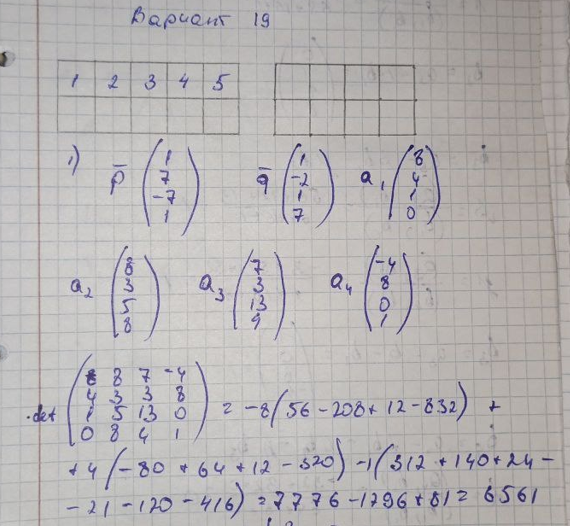 Вариант 19
1 2 3 4 5
1) p̄ (1 7 -7 1) q̄ (1 -2 1 7) a₁ (8 4 1 0)
a₂ (8 3 5 8) a₃ (7 3 13 4) a₄ (-4 8 0 1)
det (8 8 7 -4
4 3 3 8
1 5 13 0
0 8 4 1) = -8(56-208+12-832) +
+4(-80+64+12-520)-1(312+140+24-
-21-120-416) = 7776-1296+81 = 6561